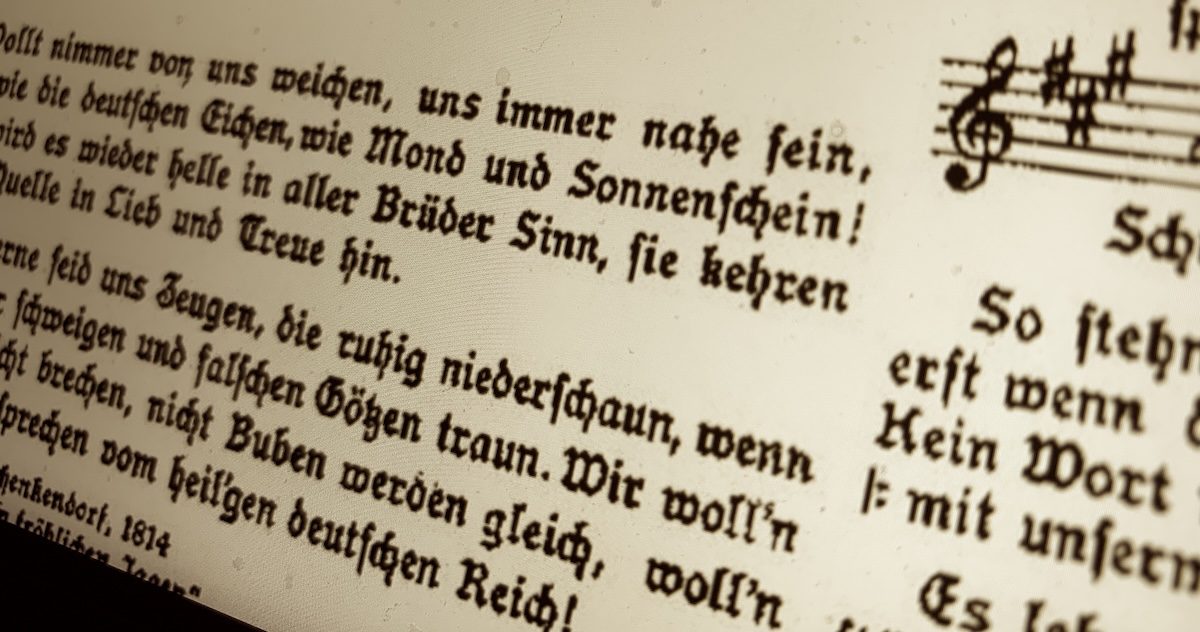 nimmer von uns weichen, uns immer nahe sein,
wie die deutschen Eichen, wie Mond und Sonnenschein!
wird es wieder helle in aller Brüder Sinn, sie kehren
Quelle in Lieb und Treue hin.
seid uns Zeugen, die ruhig niederschaun, wenn
schweigen und falschen Götzen traun. Wir woll'n
brechen, nicht Buben werden gleich, woll'n
sprechen vom heil'gen deutschen Reich!
1814
So
erst wenn
Kein Wort
|: mit unserm
Es